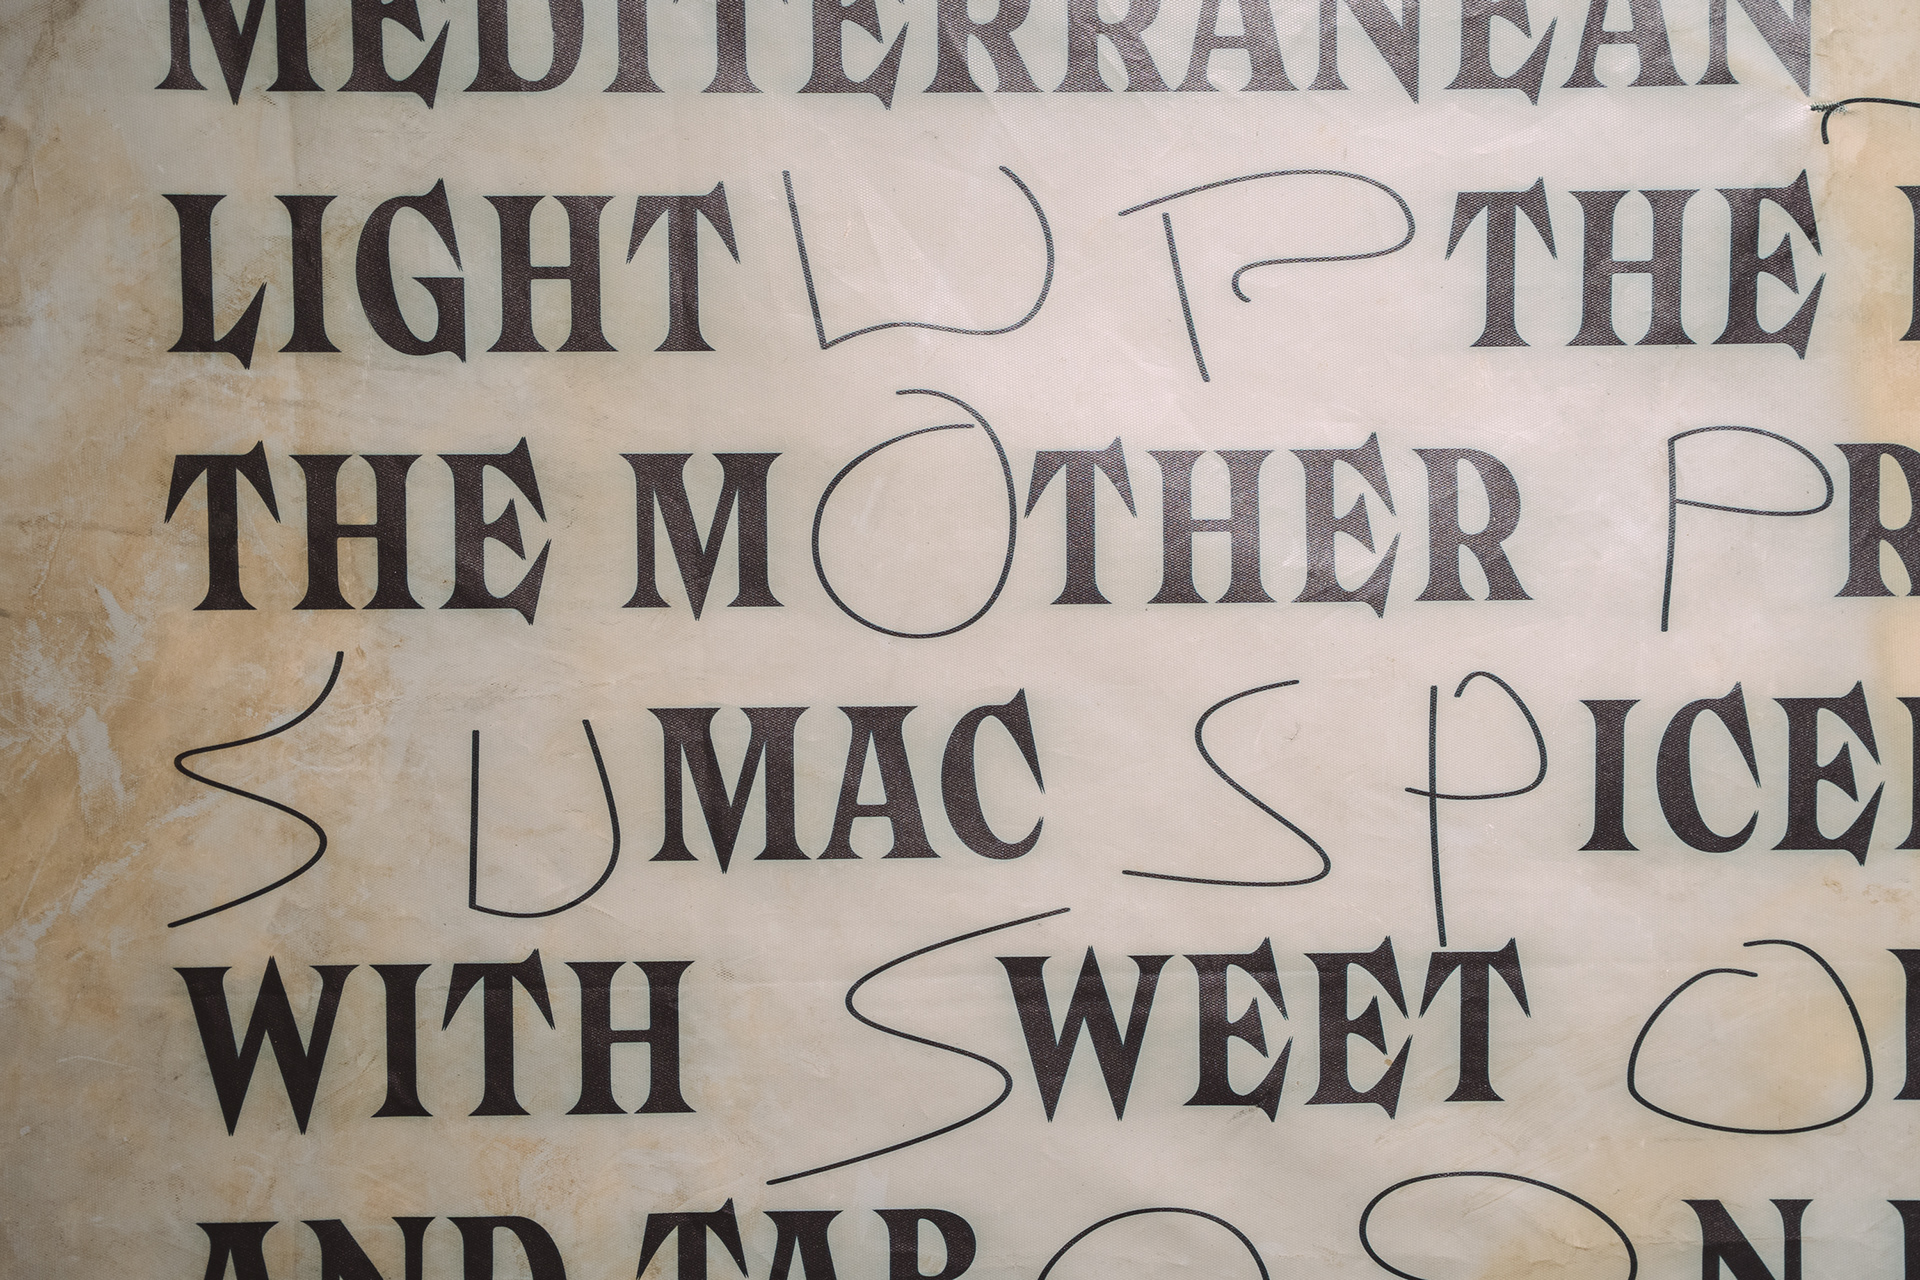 MEDITERRANEAN
LIGHT UP THE
THE MOTHER PR
SUMAC SPICE
WITH SWEET O
AND TAB